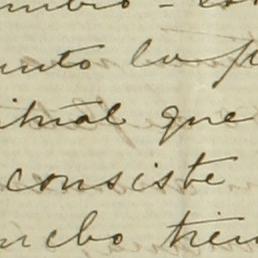 unto la
itual que
consiste
ucho tiem